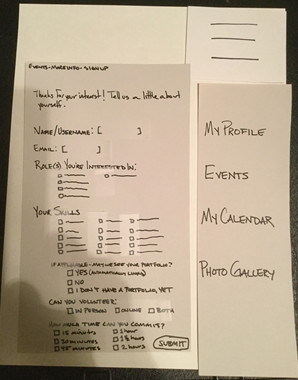 EVENTS-MORE INFO-SIGN UP
Thanks for your interest! Tell us a little about
yourself.
NAME/USERNAME: [ ]
EMAIL: [ ]
ROLE(S) YOU'RE INTERESTED IN:
YOUR SKILLS
IF APPLICABLE-MAY WE SEE YOUR PORTFOLIO?
YES
NO
I DON'T HAVE A PORTFOLIO, YET
CAN YOU VOLUNTEER:
IN PERSON ONLINE BOTH
HOW MUCH TIME CAN YOU COMMIT?
15 MINUTES 1 hour
30 MINUTES 1½ hours
45 MINUTES 2 hours
SUBMIT
MY PROFILE
EVENTS
MY CALENDAR
PHOTO GALLERY